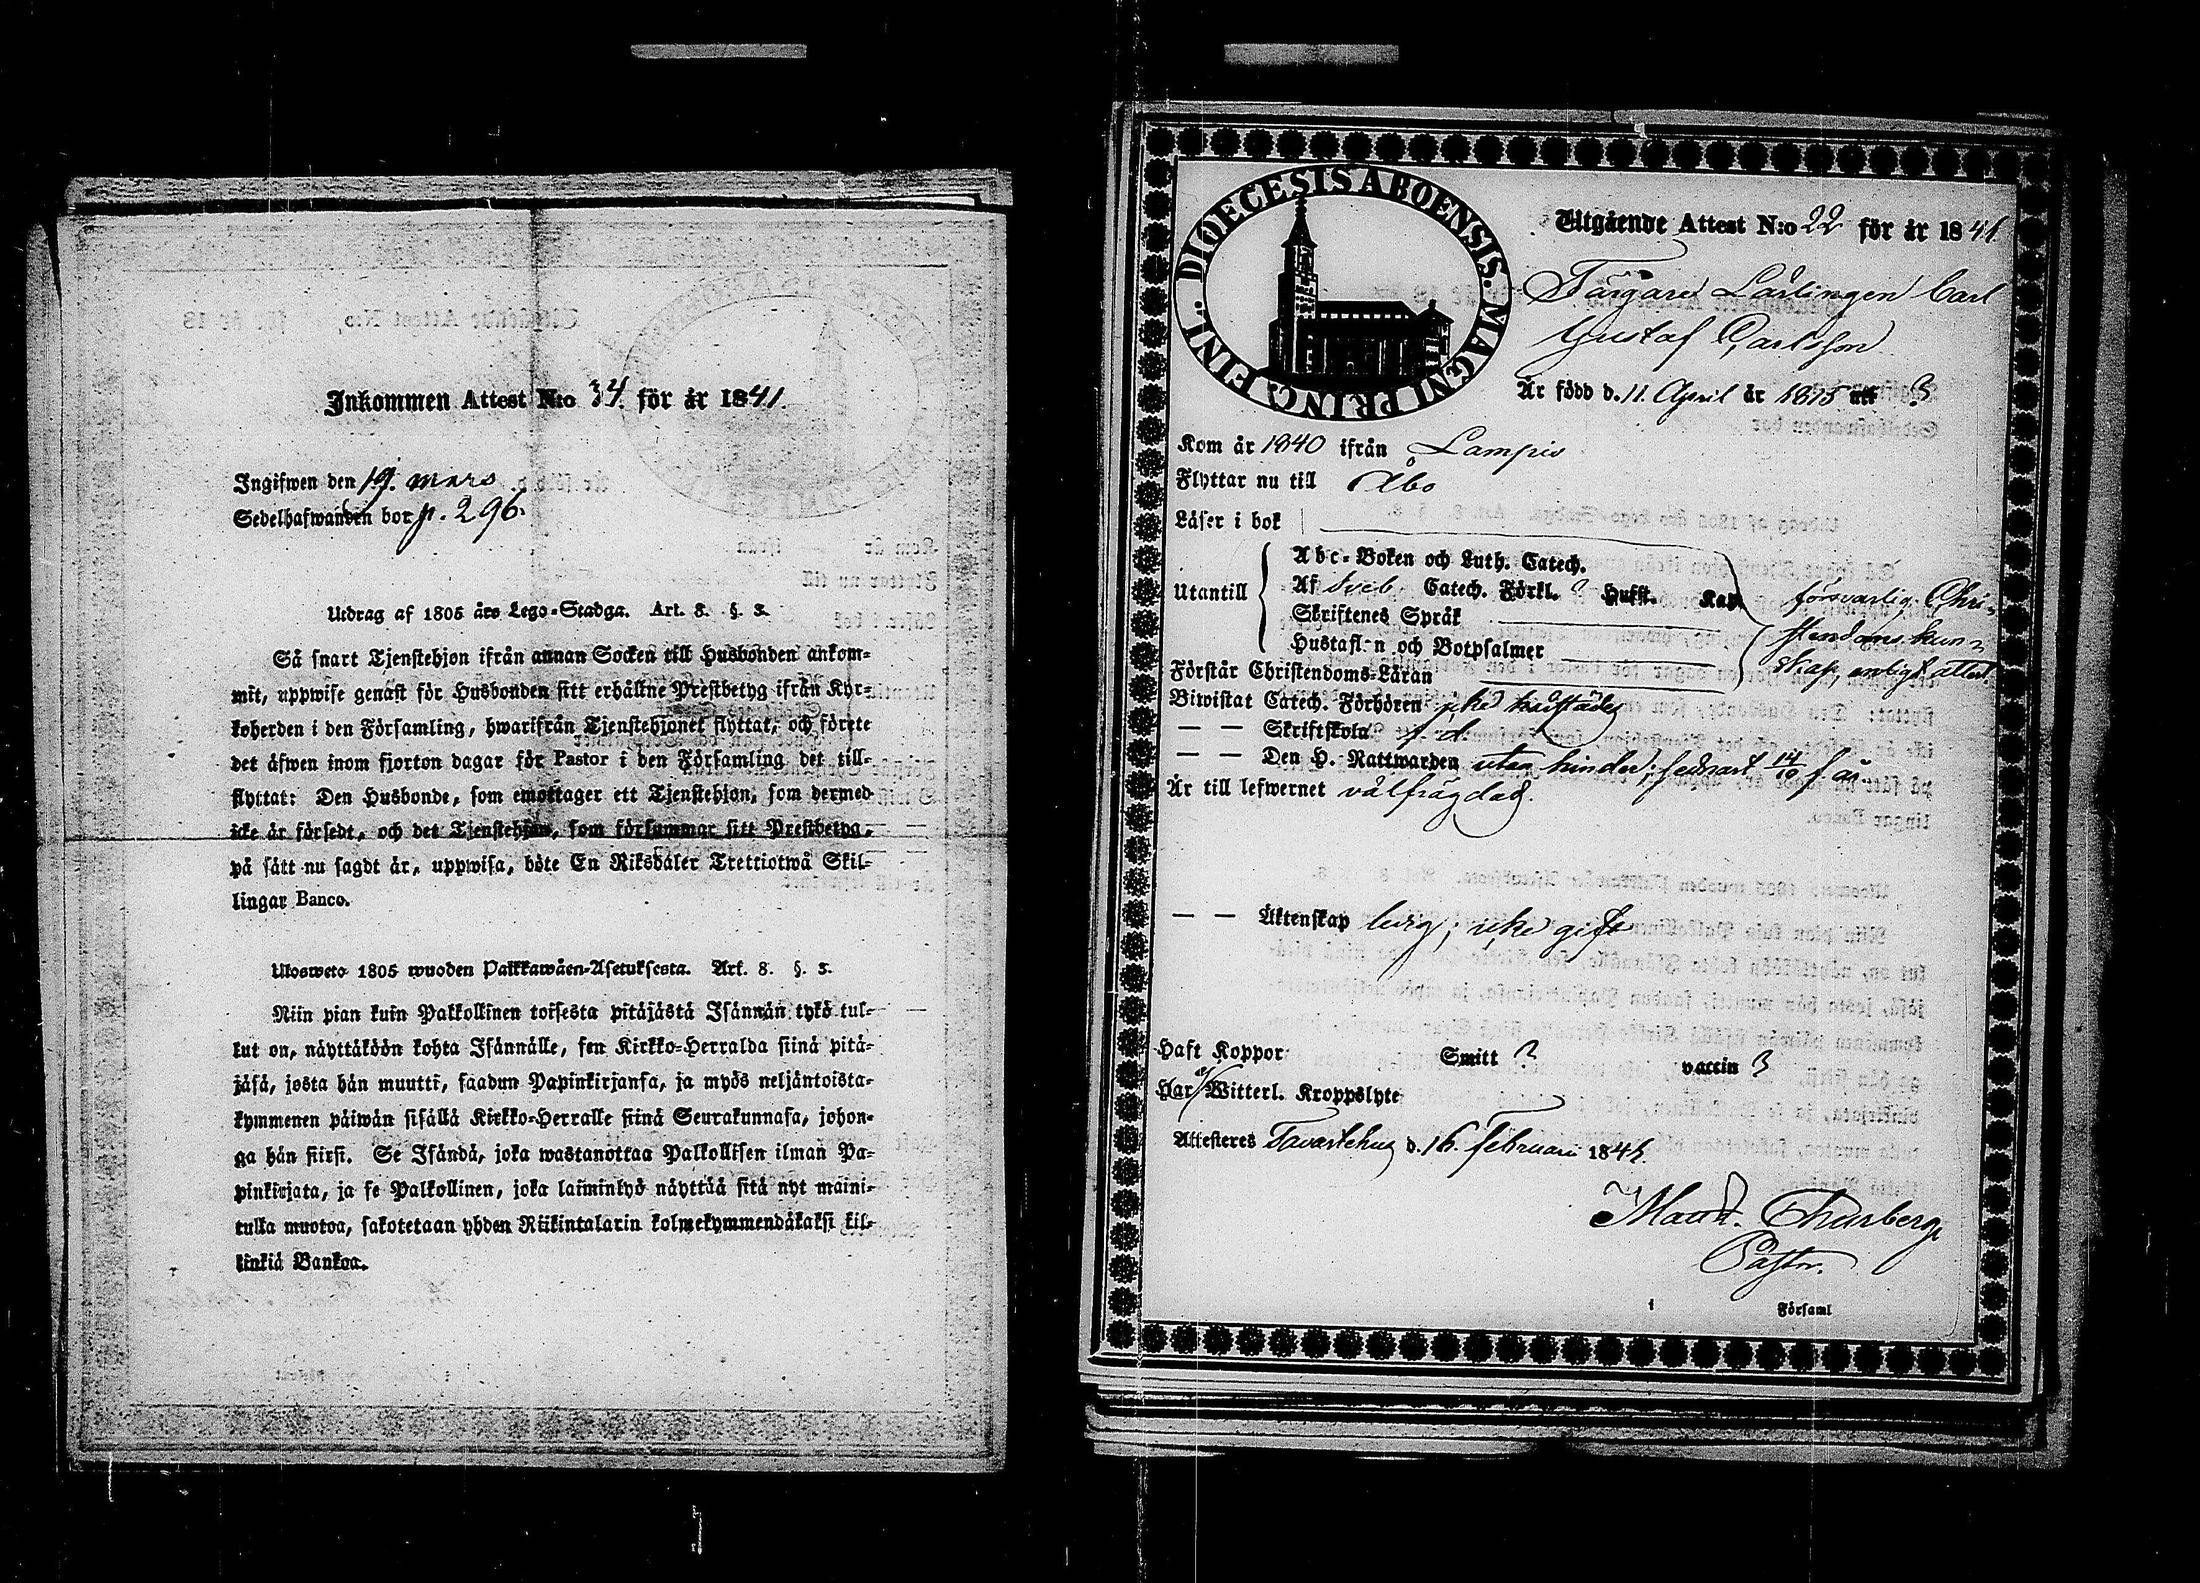 Inkommen Attest N:o 34. för år 1841.
Ingifwen den 19. mars
Sedelhafwanden bor p. 296.
Utdrag af 1805 års Lego-Stadga. Art. 8. §. 3.
Så snart Tjenstehjon ifrån annan Socken till Husbonden ankom-
mit, uppwise genast för Husbonden sitt erhållne Prestbetyg ifrån Kyr-
koherden i den Församling, hwarifrån Tjenstehjonet flyttat, och förete
det äfwen inom fjorton dagar för Pastor i den Församling det till-
flyttat: Den Husbonde, som emottager ett Tjenstehjon, som dermed
icke är försedt, och det Tjenstehjon, som försummar sitt Prestbetyg,
på sätt nu sagdt är, uppwisa, böte En Riksdaler Trettiotwå Skil-
lingar Banco.
Uloswето 1805 wuoden Palkkawäen-Asetuksesta. Art. 8. §. 3.
Niin pian kuin Palkollinen toisesta pitäjästä Isännän tykö tul-
lut on, näyttäköön kohta Isännälle, sen Kirkko-Herralda siinä pitä-
jäsä, josta hän muutti, saadun Papinkirjansa, ja myös neljäntoista-
kymmenen päiwän sisällä Kirkko-Herralle siinä Seurakunnasa, johon-
ga hän siirsi. Se Isändä, joka wastanottaa Palkollisen ilman Pa-
pinkirjata, ja se Palkollinen, joka laiminlyö näyttää sitä nyt maini-
tulla muotoa, sakotetaan yhden Riikintalarin kolmekymmendäkaksi kil-
linkiä Bankoa.
DIOECESIS ABOENSIS. MAGNI PRINC. FINL.
Utgående Attest N:o 22 för år 1841.
Färgare Lärlingen Carl
Gustaf Carlsson
Är född d. 11. April år 1815 uti ?
Kom år 1840 ifrån Lampis
Flyttar nu till Åbo
Läser i bok
Utantill
Abc-Boken och Luth. Catech.
Af Sveb. Catech. Förkl. ? Hufst. Kap.
Skriftenes Språk
Hustaflan och Botpsalmer
Förstår Christendoms-Läran
försvarlig Chri-
stendoms kun-
skap, enligt attest.
Biwistat Catech. Förhören icke
— — Skriftskola
— — Den H. Nattwarden utan hinder; sednast 14/10 f. år
Är till lefwernet välfrägdad.
— — Äktenskap ledig; icke gift
Haft Koppor Smitt ? vaccin ?
Har Witterl. Kroppslyte
Attesteres Tavastehus d. 16. Februari 1841.
Maur. Thurberg
Pastor.
i Församl